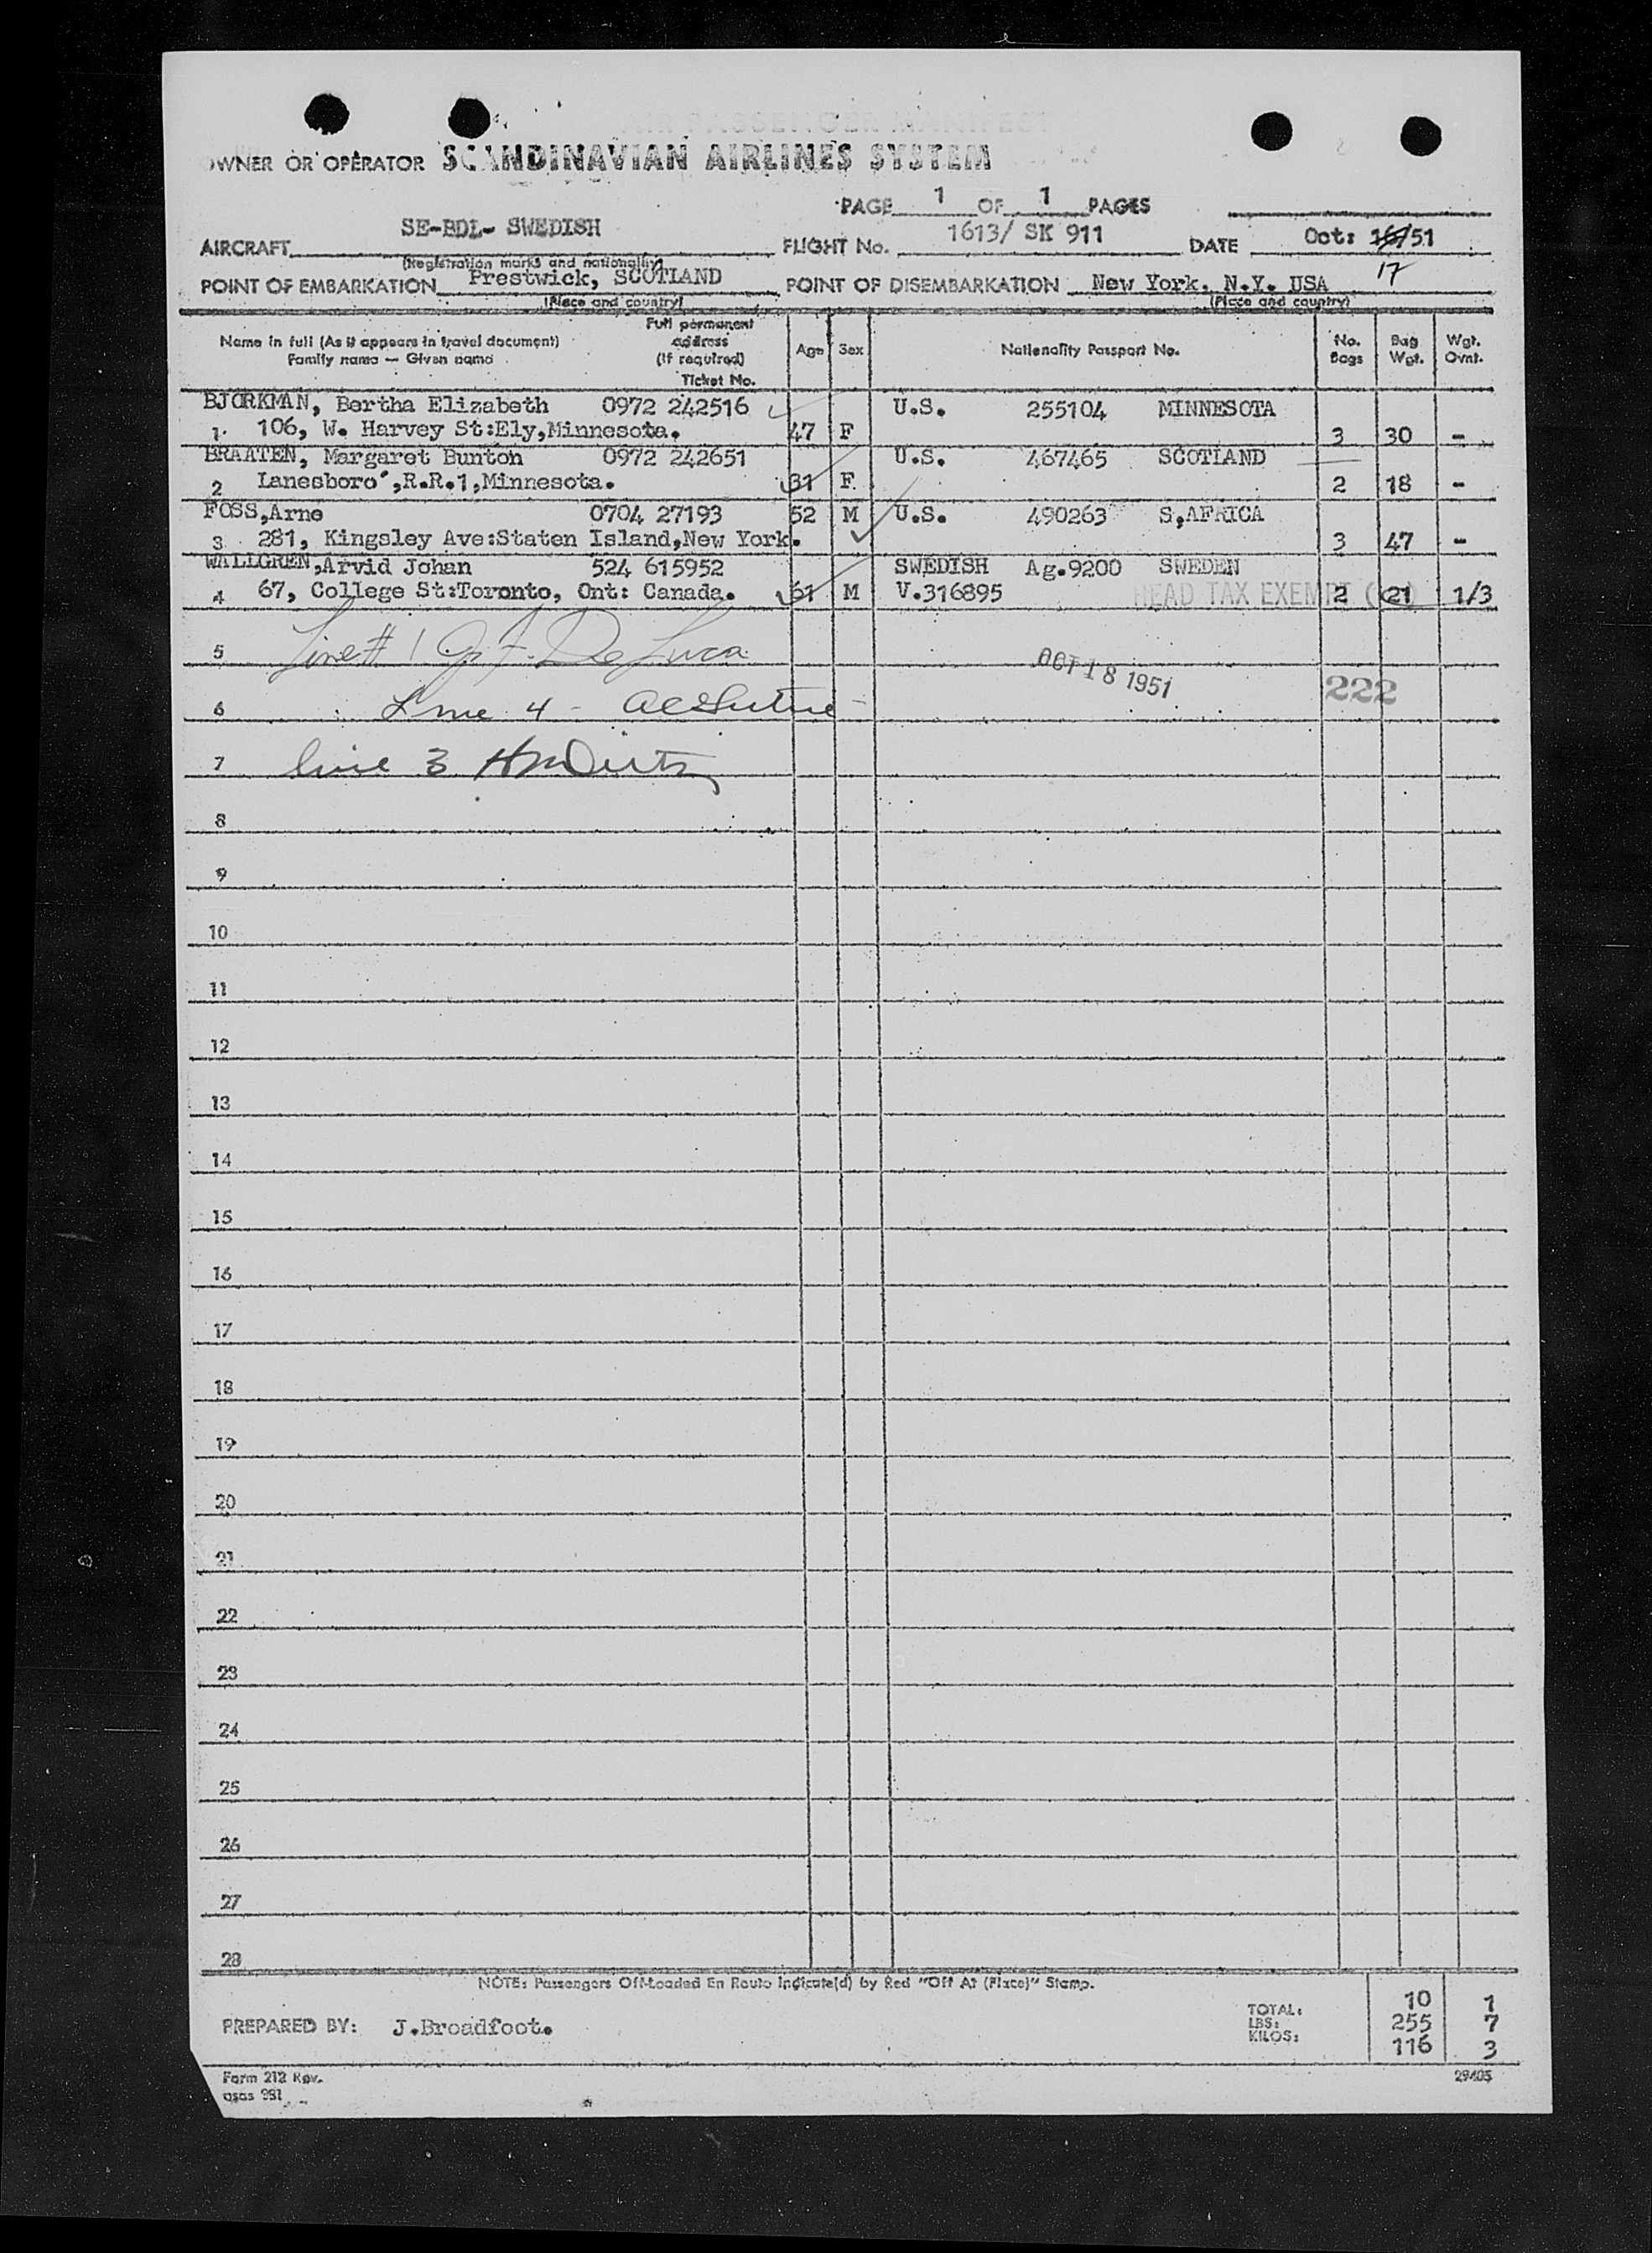 OWNER OR OPERATOR SCANDINAVIAN AIRLINES SYSTEM
PAGE 1 OF 1 PAGES
AIRCRAFT SE-BDL- SWEDISH FLIGHT No. 1613/ SK 911 DATE Oct: 16/51
(Registration marks and nationality)
17
POINT OF EMBARKATION Prestwick, SCOTLAND POINT OF DISEMBARKATION New York, N.Y. USA
(Place and country) (Place and country)
Name in full (As it appears in travel document) Full permanent address (If required) Age Sex Nationality Passport No. No. Bags Bag Wgt. Wgt. Ovnt.
Family name — Given name Ticket No.
BJORKMAN, Bertha Elizabeth 0972 242516 U.S. 255104 MINNESOTA
1. 106, W. Harvey St:Ely,Minnesota. 47 F 3 30 -
BRAATEN, Margaret Bunton 0972 242651 U.S. 467465 SCOTLAND
2 Lanesboro',R.R.1,Minnesota. 31 F 2 18 -
FOSS,Arne 0704 27193 52 M U.S. 490263 S,AFRICA
3 281, Kingsley Ave:Staten Island,New York. 3 47 -
WALLGREN,Arvid Johan 524 615952 SWEDISH Ag.9200 SWEDEN
4 67, College St:Toronto, Ont: Canada. 61 M V.316895 HEAD TAX EXEMPT 2 21 1/3
5 Line # 1 De Luca
OCT 18 1951
222
6 Line 4 -
7 line 3
8
9
10
11
12
13
14
15
16
17
18
19
20
21
22
23
24
25
26
27
28
NOTE: Passengers Off-Loaded En Route Indicate(d) by Red "Off At (Place)" Stamp.
TOTAL: 10 1
PREPARED BY: J.Broadfoot. LBS: 255 7
KILOS: 116 3
Form 212 Rev. 29405